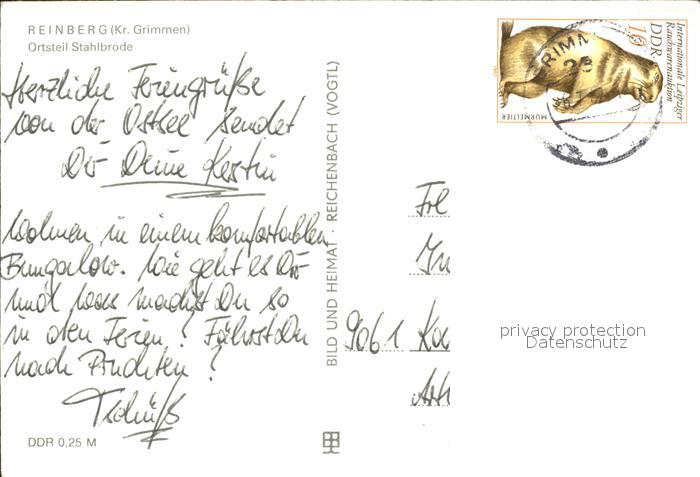 REINBERG (Kr. Grimmen)
Ortsteil Stahlbrode
Herzliche Feriengrüße
von der Ostsee sendet
Dir Deine Kerstin
Wohnen in einem komfortablen
Bungalow. Wie geht es Dir
und was machst Du so
in den Ferien? Fährst Du
nach
Tschüß
DDR 0,25 M
BILD UND HEIMAT REICHENBACH (VOGTL)
Internationale Leipziger
Rauchwarenauktion
DDR
10
MURMELTIER
Frl
9061
privacy protection
Datenschutz